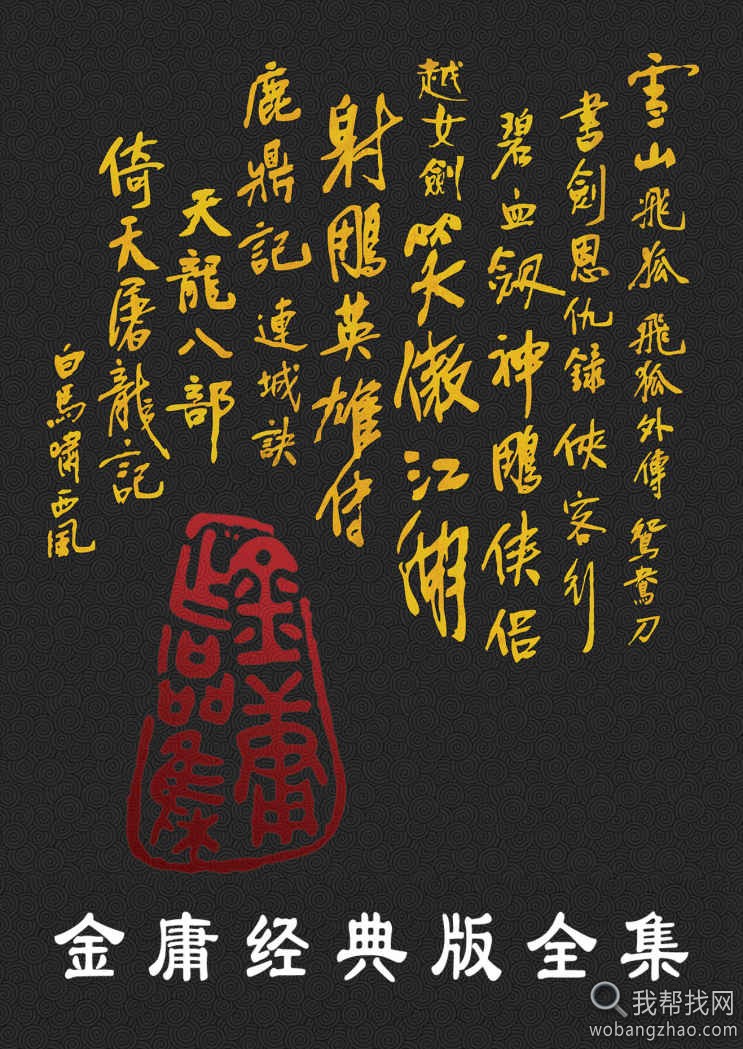 雪山飛狐 飛狐外傳 鴛鴦刀
書劍恩仇録 俠客行
碧血劔神鵰侠侣
越女劍笑傲江湖
射鵰英雄传
鹿鼎記 連城訣
天龍八部
倚天屠龍記
白馬嘯西風
金庸
作品集
金庸经典版全集
我帮找网
wobangzhao.com